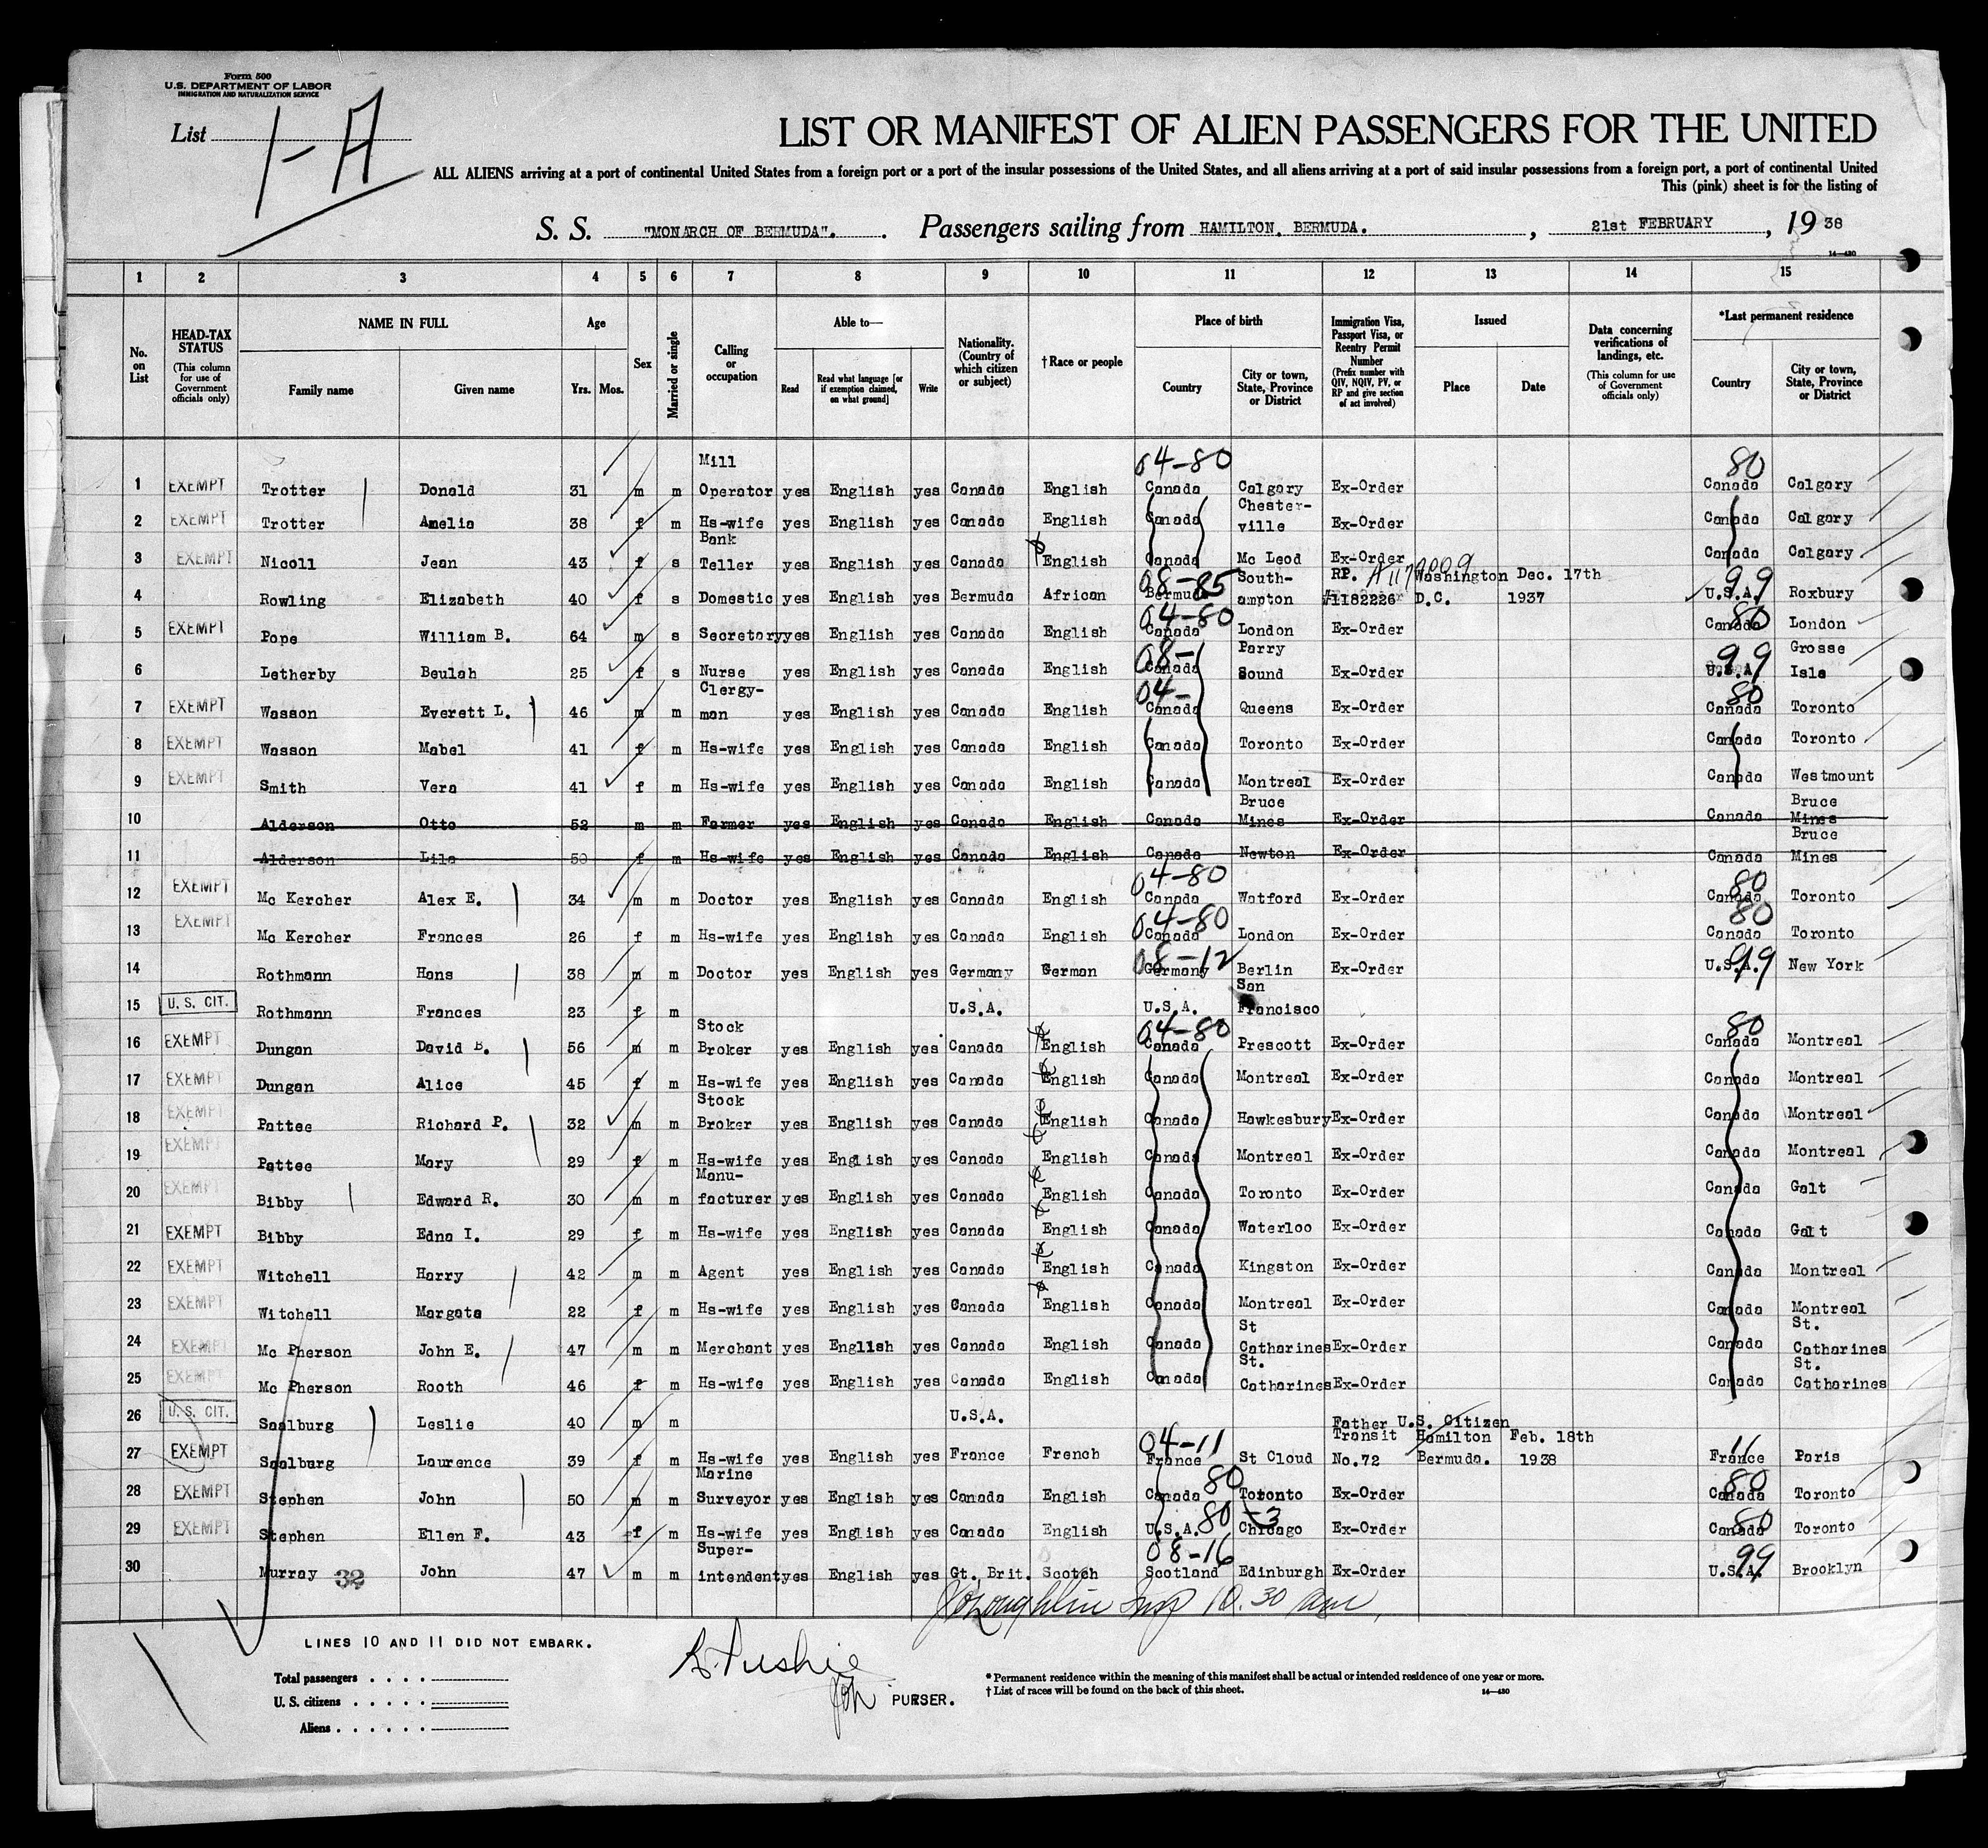 Form 500
U.S. DEPARTMENT OF LABOR
IMMIGRATION AND NATURALIZATION SERVICE
List 1-A
LIST OR MANIFEST OF ALIEN PASSENGERS FOR THE UNITED
ALL ALIENS arriving at a port of continental United States from a foreign port or a port of the insular possessions of the United States, and all aliens arriving at a port of said insular possessions from a foreign port, a port of continental United
This (pink) sheet is for the listing of
S. S. "MONARCH OF BERMUDA". Passengers sailing from HAMILTON, BERMUDA. , 21st FEBRUARY , 1938
14-430
1 2 3 4 5 6 7 8 9 10 11 12 13 14 15
No. on List
HEAD-TAX STATUS (This column for use of Government officials only)
NAME IN FULL Family name Given name
Age Yrs. Mos.
Sex
Married or single
Calling or occupation
Able to— Read Read what language [or if exemption claimed, on what ground] Write
Nationality. (Country of which citizen or subject)
† Race or people
Place of birth Country City or town, State, Province or District
Immigration Visa, Passport Visa, or Reentry Permit Number (Prefix number with QIV, NQIV, PV, or RP and give section of act involved)
Issued Place Date
Data concerning verifications of landings, etc. (This column for use of Government officials only)
*Last permanent residence Country City or town, State, Province or District
1 EXEMPT Trotter Donald 31 m m Mill Operator yes English yes Canada English 04-80 Canada Calgary Ex-Order 80 Canada Calgary
2 EXEMPT Trotter Amelia 38 f m Hs-wife yes English yes Canada English Canada Chester-ville Ex-Order Canada Calgary
3 EXEMPT Nicoll Jean 43 f s Bank Teller yes English yes Canada English Canada Mc Leod Ex-Order Canada Calgary
4 Rowling Elizabeth 40 f s Domestic yes English yes Bermuda African 08-85 Bermuda South-ampton RP. #1182226 Washington D.C. Dec. 17th 1937 99 U.S.A. Roxbury
5 EXEMPT Pope William B. 64 m s Secretary yes English yes Canada English 04-80 Canada London Ex-Order 80 Canada London
6 Letherby Beulah 25 f s Nurse yes English yes Canada English 08- Canada Parry Sound Ex-Order 99 U.S.A. Grosse Isle
7 EXEMPT Wasson Everett L. 46 m m Clergy-man yes English yes Canada English 04- Canada Queens Ex-Order 80 Canada Toronto
8 EXEMPT Wasson Mabel 41 f m Hs-wife yes English yes Canada English Canada Toronto Ex-Order Canada Toronto
9 EXEMPT Smith Vera 41 f m Hs-wife yes English yes Canada English Canada Montreal Ex-Order Canada Westmount
10 Alderson Otto 52 m m Farmer yes English yes Canada English Canada Bruce Mines Ex-Order Canada Bruce Mines
11 Alderson Lila 50 f m Hs-wife yes English yes Canada English Canada Newton Ex-Order Canada Bruce Mines
12 EXEMPT Mc Kercher Alex E. 34 m m Doctor yes English yes Canada English 04-80 Canada Watford Ex-Order 80 Canada Toronto
13 EXEMPT Mc Kercher Frances 26 f m Hs-wife yes English yes Canada English 04-80 Canada London Ex-Order 80 Canada Toronto
14 Rothmann Hans 38 m m Doctor yes English yes Germany German 08-12 Germany Berlin Ex-Order 99 U.S.A. New York
15 U. S. CIT. Rothmann Frances 23 f m U.S.A. U.S.A. San Francisco
16 EXEMPT Dungan David B. 56 m m Stock Broker yes English yes Canada English 04-80 Canada Prescott Ex-Order 80 Canada Montreal
17 EXEMPT Dungan Alice 45 f m Hs-wife yes English yes Canada English Canada Montreal Ex-Order Canada Montreal
18 EXEMPT Pattee Richard P. 32 m m Stock Broker yes English yes Canada English Canada Hawkesbury Ex-Order Canada Montreal
19 EXEMPT Pattee Mary 29 f m Hs-wife yes English yes Canada English Canada Montreal Ex-Order Canada Montreal
20 EXEMPT Bibby Edward R. 30 m m Manu-facturer yes English yes Canada English Canada Toronto Ex-Order Canada Galt
21 EXEMPT Bibby Edna I. 29 f m Hs-wife yes English yes Canada English Canada Waterloo Ex-Order Canada Galt
22 EXEMPT Witchell Harry 42 m m Agent yes English yes Canada English Canada Kingston Ex-Order Canada Montreal
23 EXEMPT Witchell Margata 22 f m Hs-wife yes English yes Canada English Canada Montreal Ex-Order Canada Montreal
24 EXEMPT Mc Pherson John E. 47 m m Merchant yes English yes Canada English Canada St Catharines Ex-Order Canada St. Catharines
25 EXEMPT Mc Pherson Rooth 46 f m Hs-wife yes English yes Canada English Canada St. Catharines Ex-Order Canada St. Catharines
26 U. S. CIT. Saalburg Leslie 40 m m U.S.A. Father U.S. Citizen
27 EXEMPT Saalburg Laurence 39 f m Hs-wife yes English yes France French 04-11 France St Cloud Transit No.72 Hamilton Bermuda. Feb. 18th 1938 11 France Paris
28 EXEMPT Stephen John 50 m m Marine Surveyor yes English yes Canada English Canada 80 Toronto Ex-Order 80 Canada Toronto
29 EXEMPT Stephen Ellen F. 43 f m Hs-wife yes English yes Canada English U.S.A. 80 -3 Chicago Ex-Order 80 Canada Toronto
30 Murray 32 John 47 m m Super-intendent yes English yes Gt. Brit. Scotch 08-16 Scotland Edinburgh Ex-Order 99 U.S.A. Brooklyn
10.30 am
LINES 10 AND 11 DID NOT EMBARK.
Total passengers . . . .
U. S. citizens . . . . .
Aliens . . . . . .
PURSER.
* Permanent residence within the meaning of this manifest shall be actual or intended residence of one year or more.
† List of races will be found on the back of this sheet.
14-430